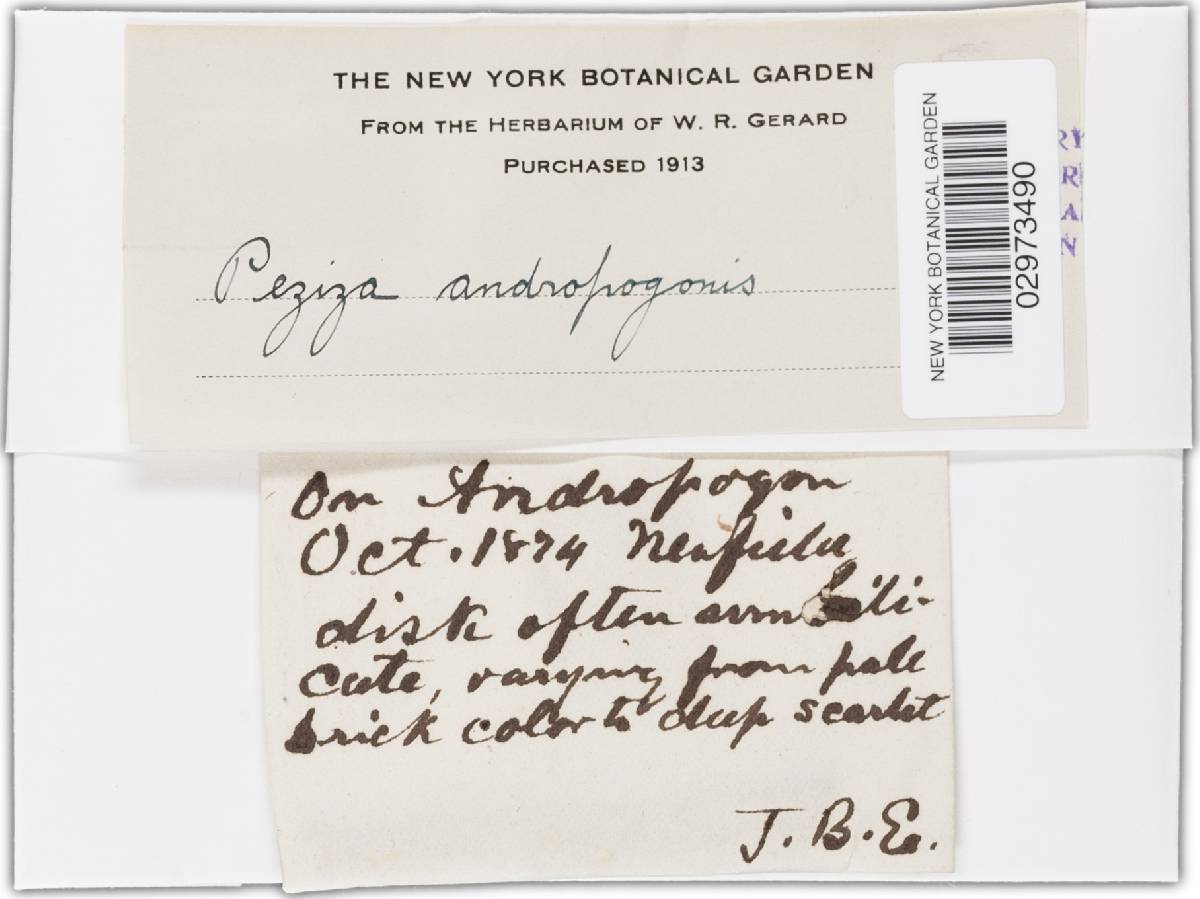 THE NEW YORK BOTANICAL GARDEN
FROM THE HERBARIUM OF W. R. GERARD
PURCHASED 1913
Peziza andropogonis
NEW YORK BOTANICAL GARDEN
02973490
RY
R
A
N
On Andropogon
Oct. 1874 Newfield
disk often umbili-
cate, varying from pale
brick color to deep scarlet
J. B. E.